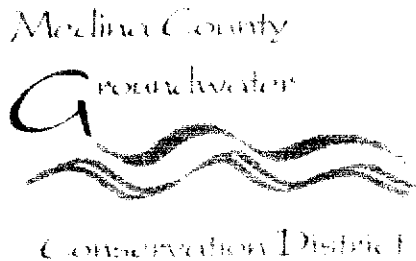 Medina County
Groundwater
Conservation District